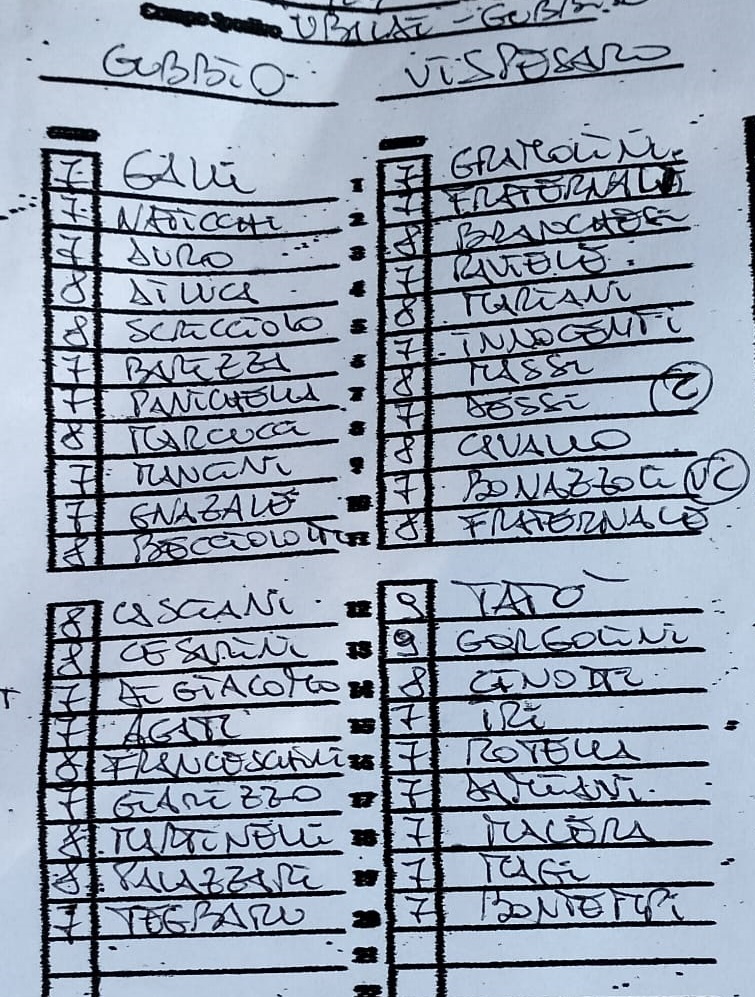 Campo Sportivo UBALDI - GUBBIO
GUBBIO VISPESARO
7 GALLI 1 7 GRATOLINI
7 NATICCHI 2 7 FRATERNALE
7 DURO 3 8 BRANCHESI
8 DI LUCA 4 7 PAVIOLO
8 SCRICCIOLO 5 8 MARIANI
7 BAREZZA 6 7 INNOCENTI
7 PANICHELLA 7 8 MASSI
8 MARCUCCI 8 7 DOSSI 2
7 MANCINI 9 8 CAVALLO
7 GNAZALE 10 7 BONAZZOLI VC
8 BOCCIOLO 11 8 FRATERNALE
8 CASCIANI 12 9 TATÒ
8 CESARINI 13 9 GORGOLINI
7 DI GIACOMO 14 8
7 AGATI 15 7 IRI
8 FRANCESCHINI 16 7 ROTELLA
7 GIAREZZO 17 7 DAMIANI
8 MARTINELLI 18 7 MACERA
8 PALAZZARI 19 7 MAGI
7 TEGBARU 20 7 BONTEMPI
21
22